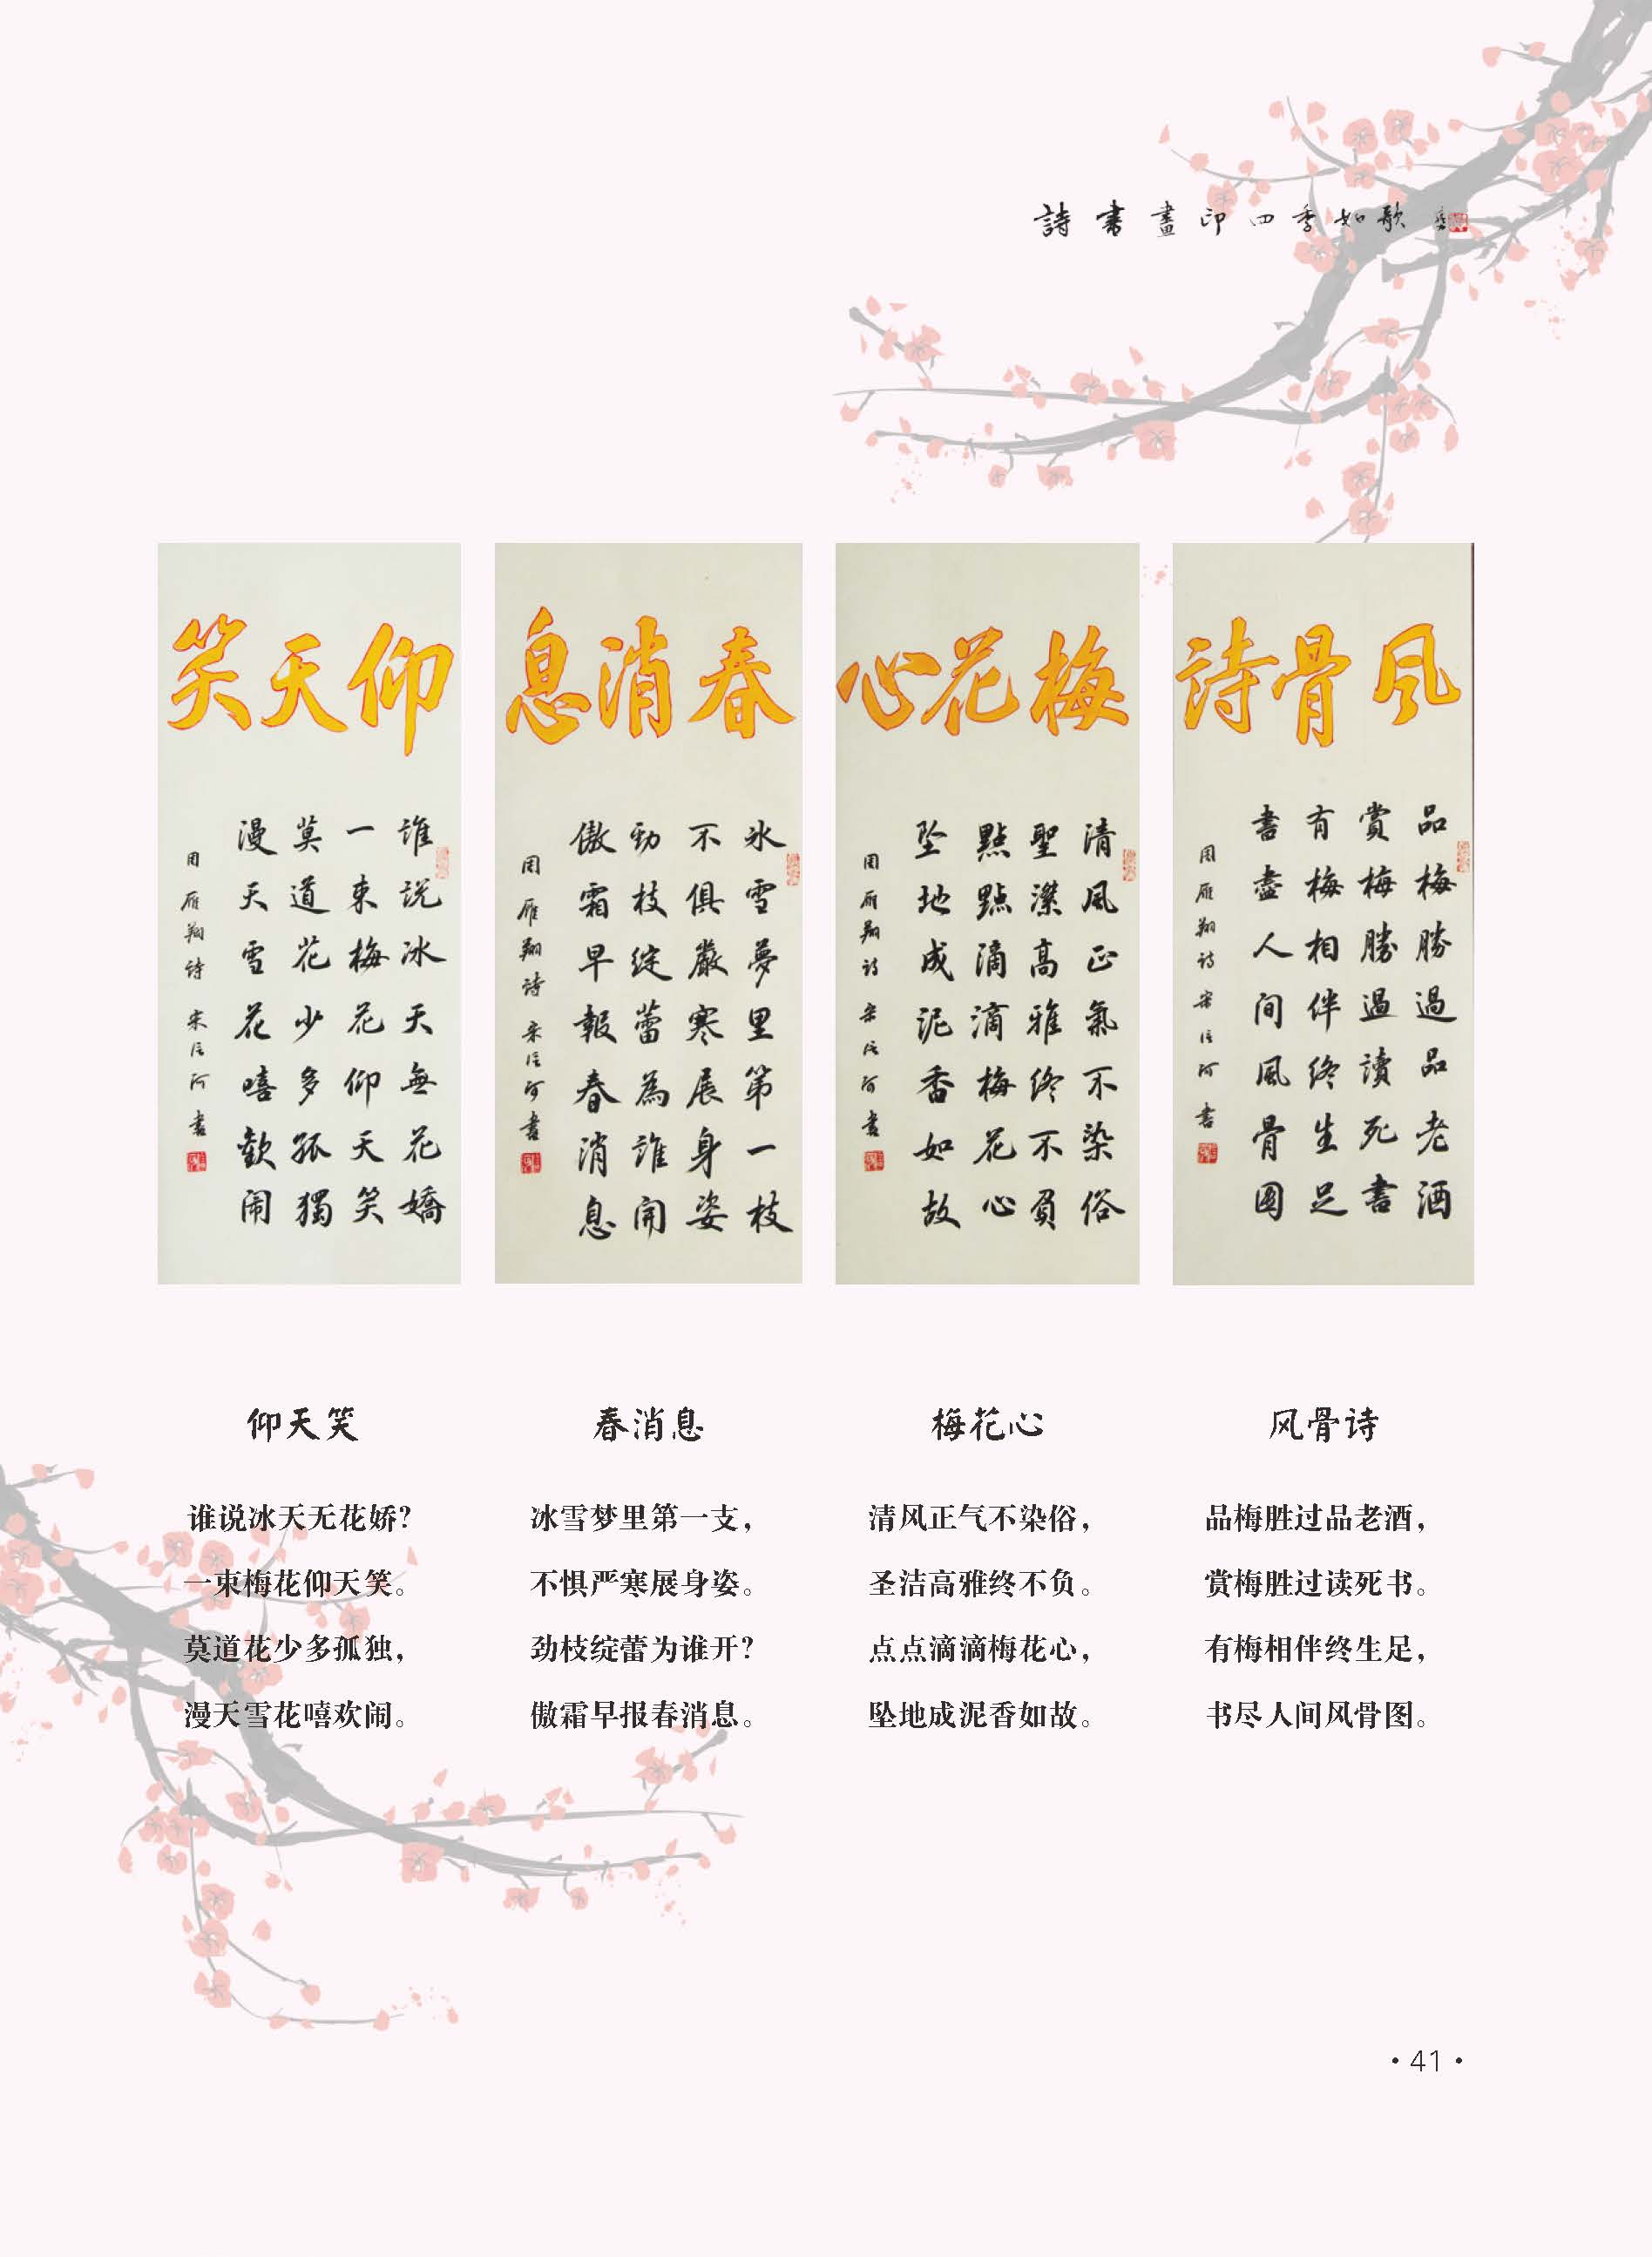 詩書畫印四季如歌
仰天笑
誰說冰天無花嬌
一束梅花仰天笑
莫道花少多孤獨
漫天雪花嘻歡闹
周雁翔诗
春消息
冰雪夢里第一枝
不俱嚴寒展身姿
勁枝綻蕾為誰開
傲霜早報春消息
周雁翔诗
梅花心
清風正氣不染俗
聖潔高雅終不負
點點滴滴梅花心
坠地成泥香如故
周雁翔诗
风骨詩
品梅勝過品老酒
賞梅勝過讀死書
有梅相伴終生足
書盡人间風骨圖
周雁翔诗
仰天笑
谁说冰天无花娇？
一束梅花仰天笑。
莫道花少多孤独，
漫天雪花嘻欢闹。
春消息
冰雪梦里第一支，
不惧严寒展身姿。
劲枝绽蕾为谁开？
傲霜早报春消息。
梅花心
清风正气不染俗，
圣洁高雅终不负。
点点滴滴梅花心，
坠地成泥香如故。
风骨诗
品梅胜过品老酒，
赏梅胜过读死书。
有梅相伴终生足，
书尽人间风骨图。
·41·